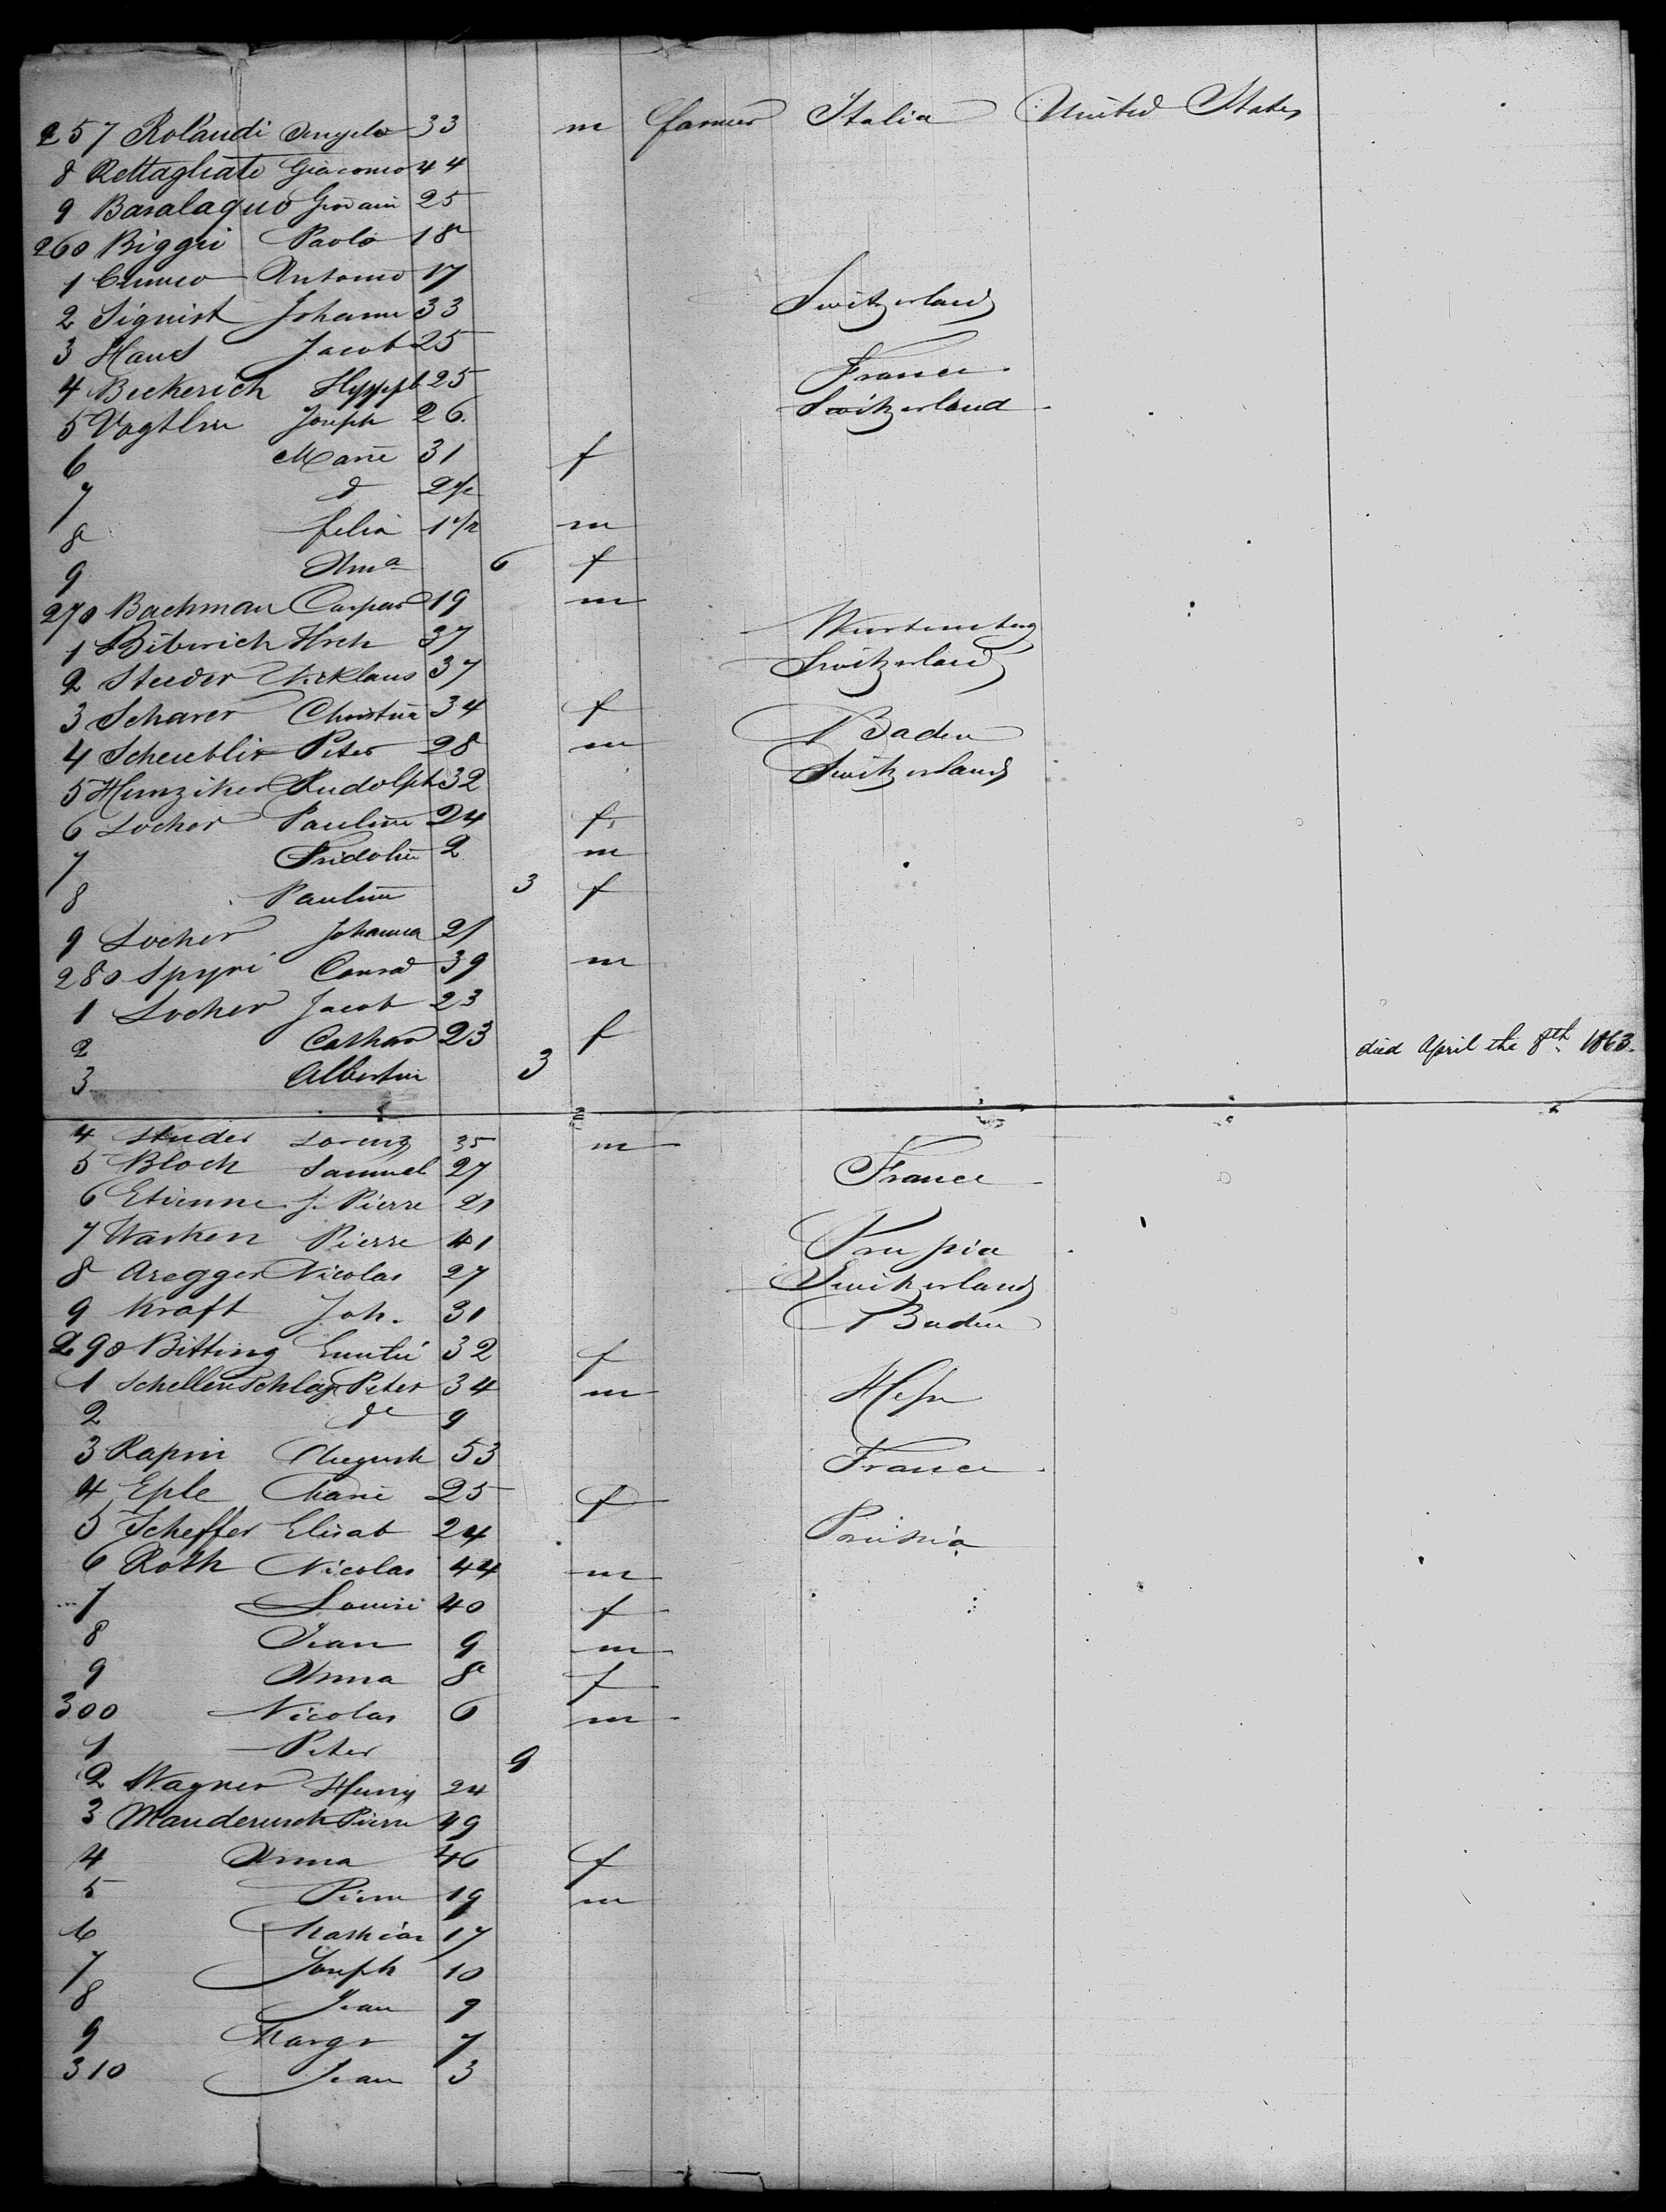 257 Rolandi Angelo 33 m farmer Italia United States
8 Rettagliate Giacomo 44
9 Basalaquo Giovani 25
260 Biggri Paolo 18
1 Cuneo Antonio 17
2 Siguist Johann 33 Switzerland
3 Jacob 25
4 Beckerich 25 France
5 Joseph 26. Switzerland
6 Marie 31 f
7 d 2 1/2
8 felix 1 1/2 m
9 6 f
270 Bachman Caspar 19 m
1 Biberich Hrch 37 Wurtemberg
2 Steuder Nicklaus 37 Switzerland
3 Scharer Christine 34 f Baden
4 Scheublin Peter 28 m Switzerland
5 Hunziker Rudolph 32
6 Locher Pauline 24 f
7 Fridolin 2 m
8 Pauline 3 f
9 Locher Johanna 21
280 Spyri Conrad 39 m
1 Locher Jacob 23
2 Cathar 23 f
3 Albertin 3 died April the 8th. 1863.
4 Studer Lorenz 35 m
5 Bloch Samuel 27 France
6 Etienne J. Pierre 21
7 Warken Pierre 41 Prussia
8 Aregger Nicolas 27 Switzerland
9 Kraft Joh. 31 Baden
290 Bitting Emilie 32 f
1 Schellenschlag Peter 34 m Hesse
2 do 9
3 Rapin August 53 France
4 Eple Marie 25 f
5 Scheffer Elisab 24 Prussia
6 Roth Nicolas 44 m
7 Louise 40 f
8 Jean 9 m
9 Anna 8 f
300 Nicolas 6 m
1 Peter 9
2 Wagner Henry 24
3 Manderusch Pierre 49
4 Anna 46 f
5 Pierre 19 m
6 Mathias 17
7 Joseph 10
8 Jean 9
9 Margr 7
310 Jean 3